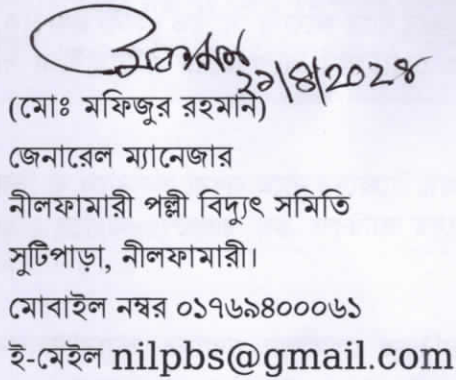 ২৯/8/202৪
(মোঃ মফিজুর রহমান)
জেনারেল ম্যানেজার
নীলফামারী পল্লী বিদ্যুৎ সমিতি
সুটিপাড়া, নীলফামারী।
মোবাইল নম্বর ০১৭৬৯৪০০০৬১
ই-মেইল nilpbs@gmail.com